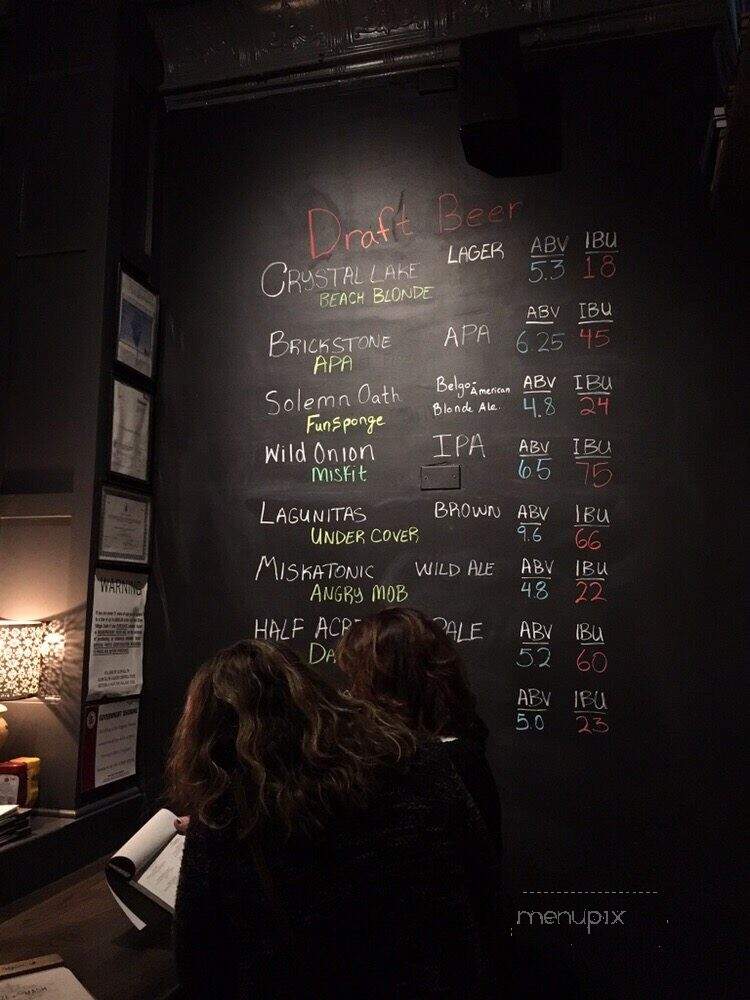 Draft Beer
CRYSTAL LAKE LAGER ABV IBU
BEACH BLONDE 5.3 18
BRICKSTONE APA ABV IBU
APA 6.25 45
Solemn Oath Belgo-American ABV IBU
Funsponge Blonde Ale. 4.8 24
Wild Onion IPA ABV IBU
Misfit 65 75
LAGUNITAS BROWN ABV IBU
UNDER COVER 9.6 66
MISKATONIC WILD ALE ABV IBU
ANGRY MOB 48 22
HALF ACR PALE ABV IBU
DA 52 60
ABV IBU
5.0 23
WARNING
GOVERNMENT WARNING
menupix